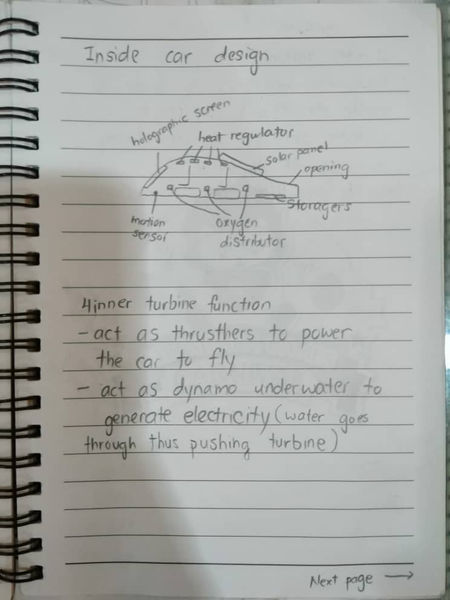 Inside car design
holographic screen
heat regulator
solar panel
opening
storagers
motion
sensor
oxygen
distributor
4inner turbine function
- act as thrusthers to power
the car to fly
- act as dynamo underwater to
generate electricity (water goes
through thus pushing turbine)
Next page →